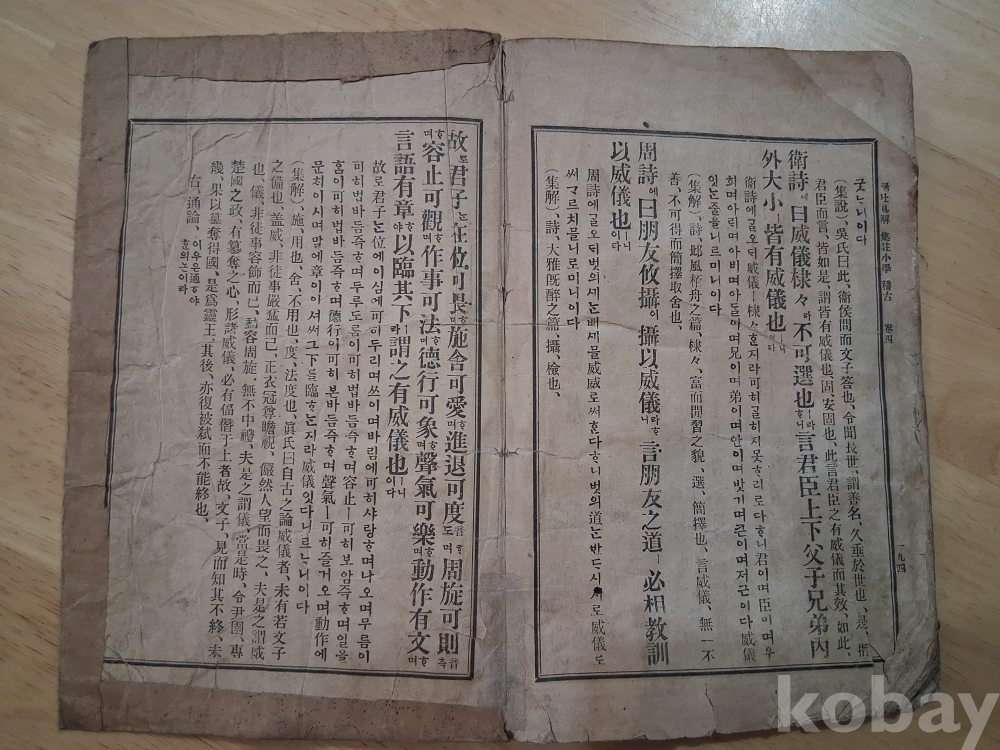 集註小學 稽古 卷四
一九四
(集說)、吳氏曰此、衛侯問而文子答也、令聞長世、謂善名、久垂於世也、是、指
君臣而言、皆如是、謂皆有威儀也、固、安固也、此言君臣之有威儀而其效、如此、
衛詩에曰威儀棣々라不可選也ㅣ라ᄒᆞ니言君臣上下父子兄弟內
外大小ㅣ皆有威儀也ㅣ니이다
衛詩에ᄀᆞᆯ오ᄃᆡ威儀ㅣ棣々ᄒᆞᆫ지라可히ᄀᆞᆯ히지못ᄒᆞ리로다ᄒᆞ니君이며臣이며우
희며아ᄅᆡ며아비며아ᄃᆞᆯ이며兄이며弟이며안이며밧기며큰이며져근이다威儀
잇ᄂᆞᆫ줄을니르미니이다
(集解)、詩、邶風栢舟之篇、棣々、富而閒習之貌、選、簡擇也、言威儀、無一不
善、不可得而簡擇取舍也、
周詩에曰朋友攸攝이攝以威儀ㅣ라ᄒᆞ니言朋友之道ㅣ必相教訓
以威儀也ㅣ니이다
周詩에ᄀᆞᆯ오ᄃᆡ벗의셰ᄂᆞᆫ배셰믈威威로써ᄒᆞᆫ다ᄒᆞ니벗의道ᄂᆞᆫ반ᄃᆞ시서로威儀로
써ᄀᆞᄅᆞ치믈니로미니이다
(集解)、詩、大雅旣醉之篇、攝、檢也、
故로君子ᄂᆞᆫ在位可畏ᄒᆞ며施舍可愛ᄒᆞ며進退可度ᄒᆞ며周旋可則ᄒᆞ며
容止可觀ᄒᆞ며作事可法ᄒᆞ며德行可象ᄒᆞ며聲氣可樂ᄒᆞ며動作有文ᄒᆞ며
言語有章ᄒᆞ야以臨其下ㅣ라謂之有威儀也ㅣ니이다
故로君子ᄂᆞᆫ位에이심에可히두리며쓰이며바림에可히샤랑ᄒᆞ며나오며무름이
可히법바듬즉ᄒᆞ며두루도름이可히법바듬즉ᄒᆞ며容止ㅣ可히보암즉ᄒᆞ며일을
홈이可히법바듬즉ᄒᆞ며德行이可히본바듬즉ᄒᆞ며聲氣ㅣ可히즐거오며動作에
文치이시며말에章이이셔써그下들臨ᄒᆞᄂᆞᆫ지라威儀잇다니르ᄂᆞ니이다
(集解)、施、用也、舍、不用也、度、法度也、眞氏曰自古之論威儀者、未有若文子
之備也、盖威、非徒事嚴猛而已、正衣冠尊瞻視、儼然人望而畏之、夫是之謂威
也、儀、非徒事容飾而已、動容周旋、無不中禮、夫是之謂儀、當是時、令尹圍、專
楚國之政、有簒奪之心、形諸威儀、必有僭于上者故、文子、見而知其不終、未
幾、果以簒奪得國、是爲靈王、其後、亦復被弑而不能終也、
右、通論、이우은通ᄒᆞ야의논이라